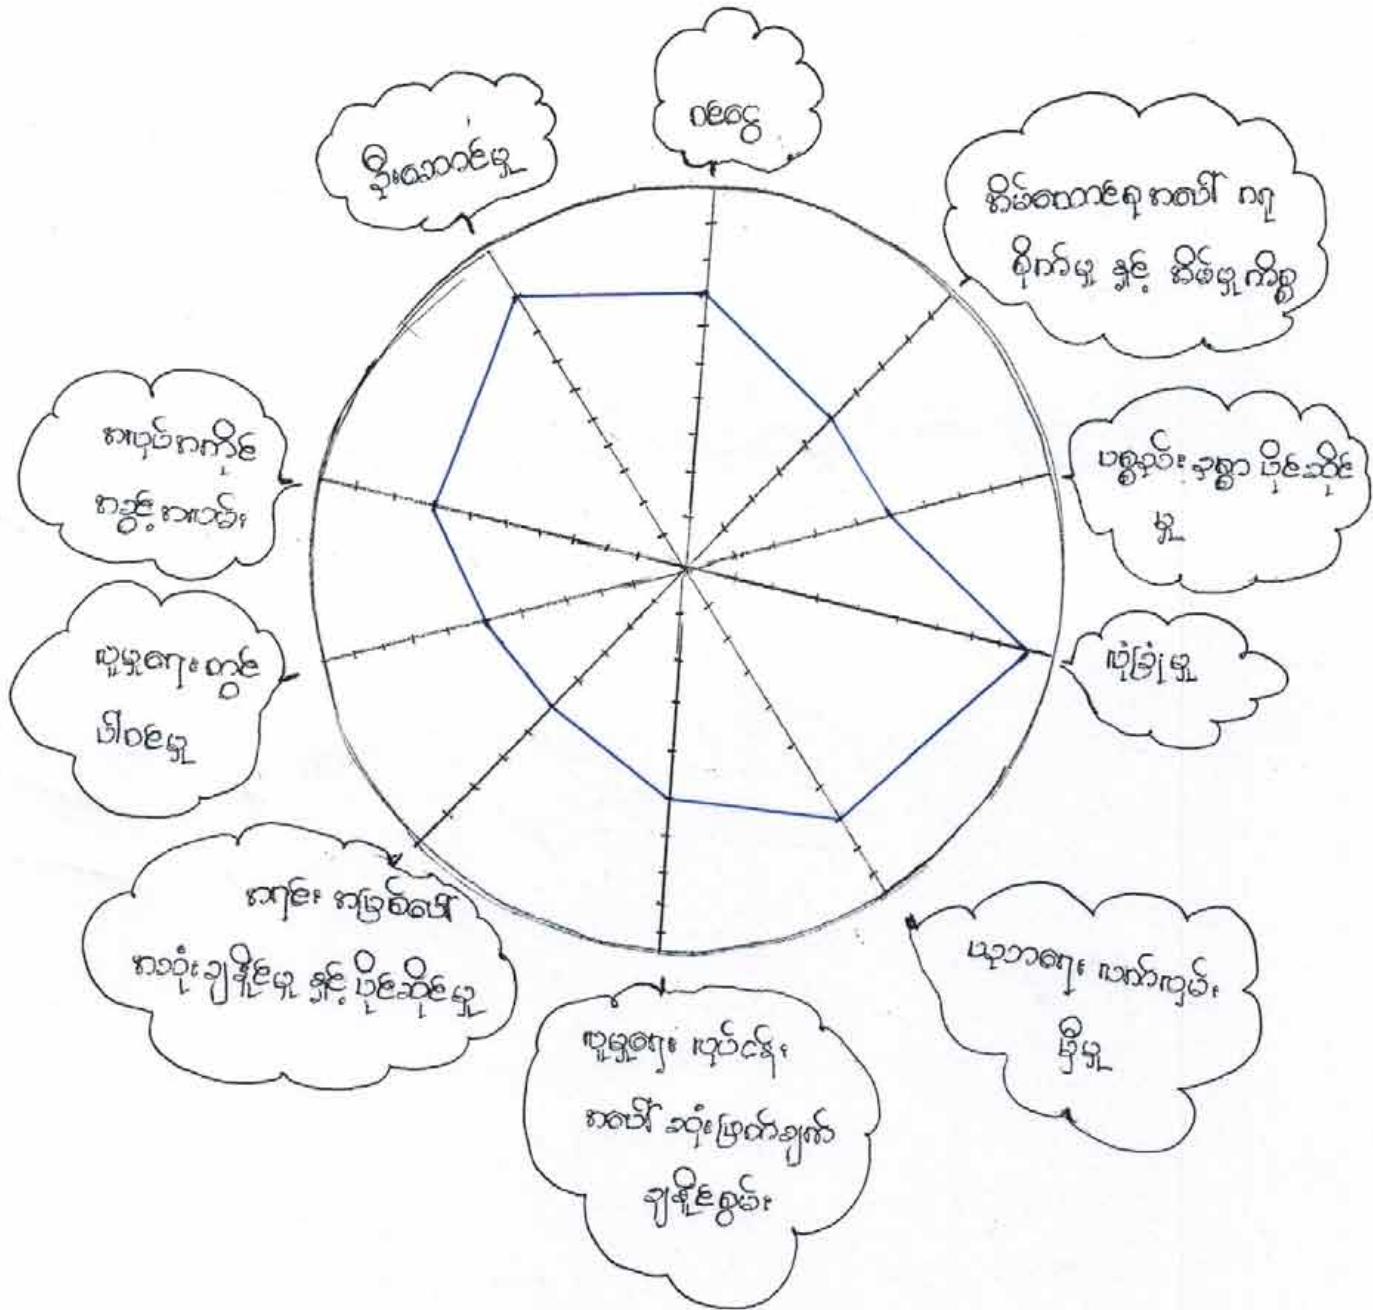 ဝင်ငွေ
ဦးဆောင်မှု
အိမ်ထောင်ရေးအပေါ် ဂရု
စိုက်မှု နှင့် အိမ်မှုကိစ္စ
ပစ္စည်းဥစ္စာ ပိုင်ဆိုင်
မှု
လုံခြုံမှု
ယုဘရေး လက်လှမ်း
မှီမှု
လူမှုရေး လုပ်ငန်း
အပေါ် ဆုံးဖြတ်ချက်
ချနိုင်စွမ်း
အရင်း အမြစ်ပေါ်
အသုံးချနိုင်မှု နှင့် ပိုင်ဆိုင်မှု
လူမှုရေးတွင်
ပါဝင်မှု
အလုပ်အကိုင်
အခွင့်အလမ်း